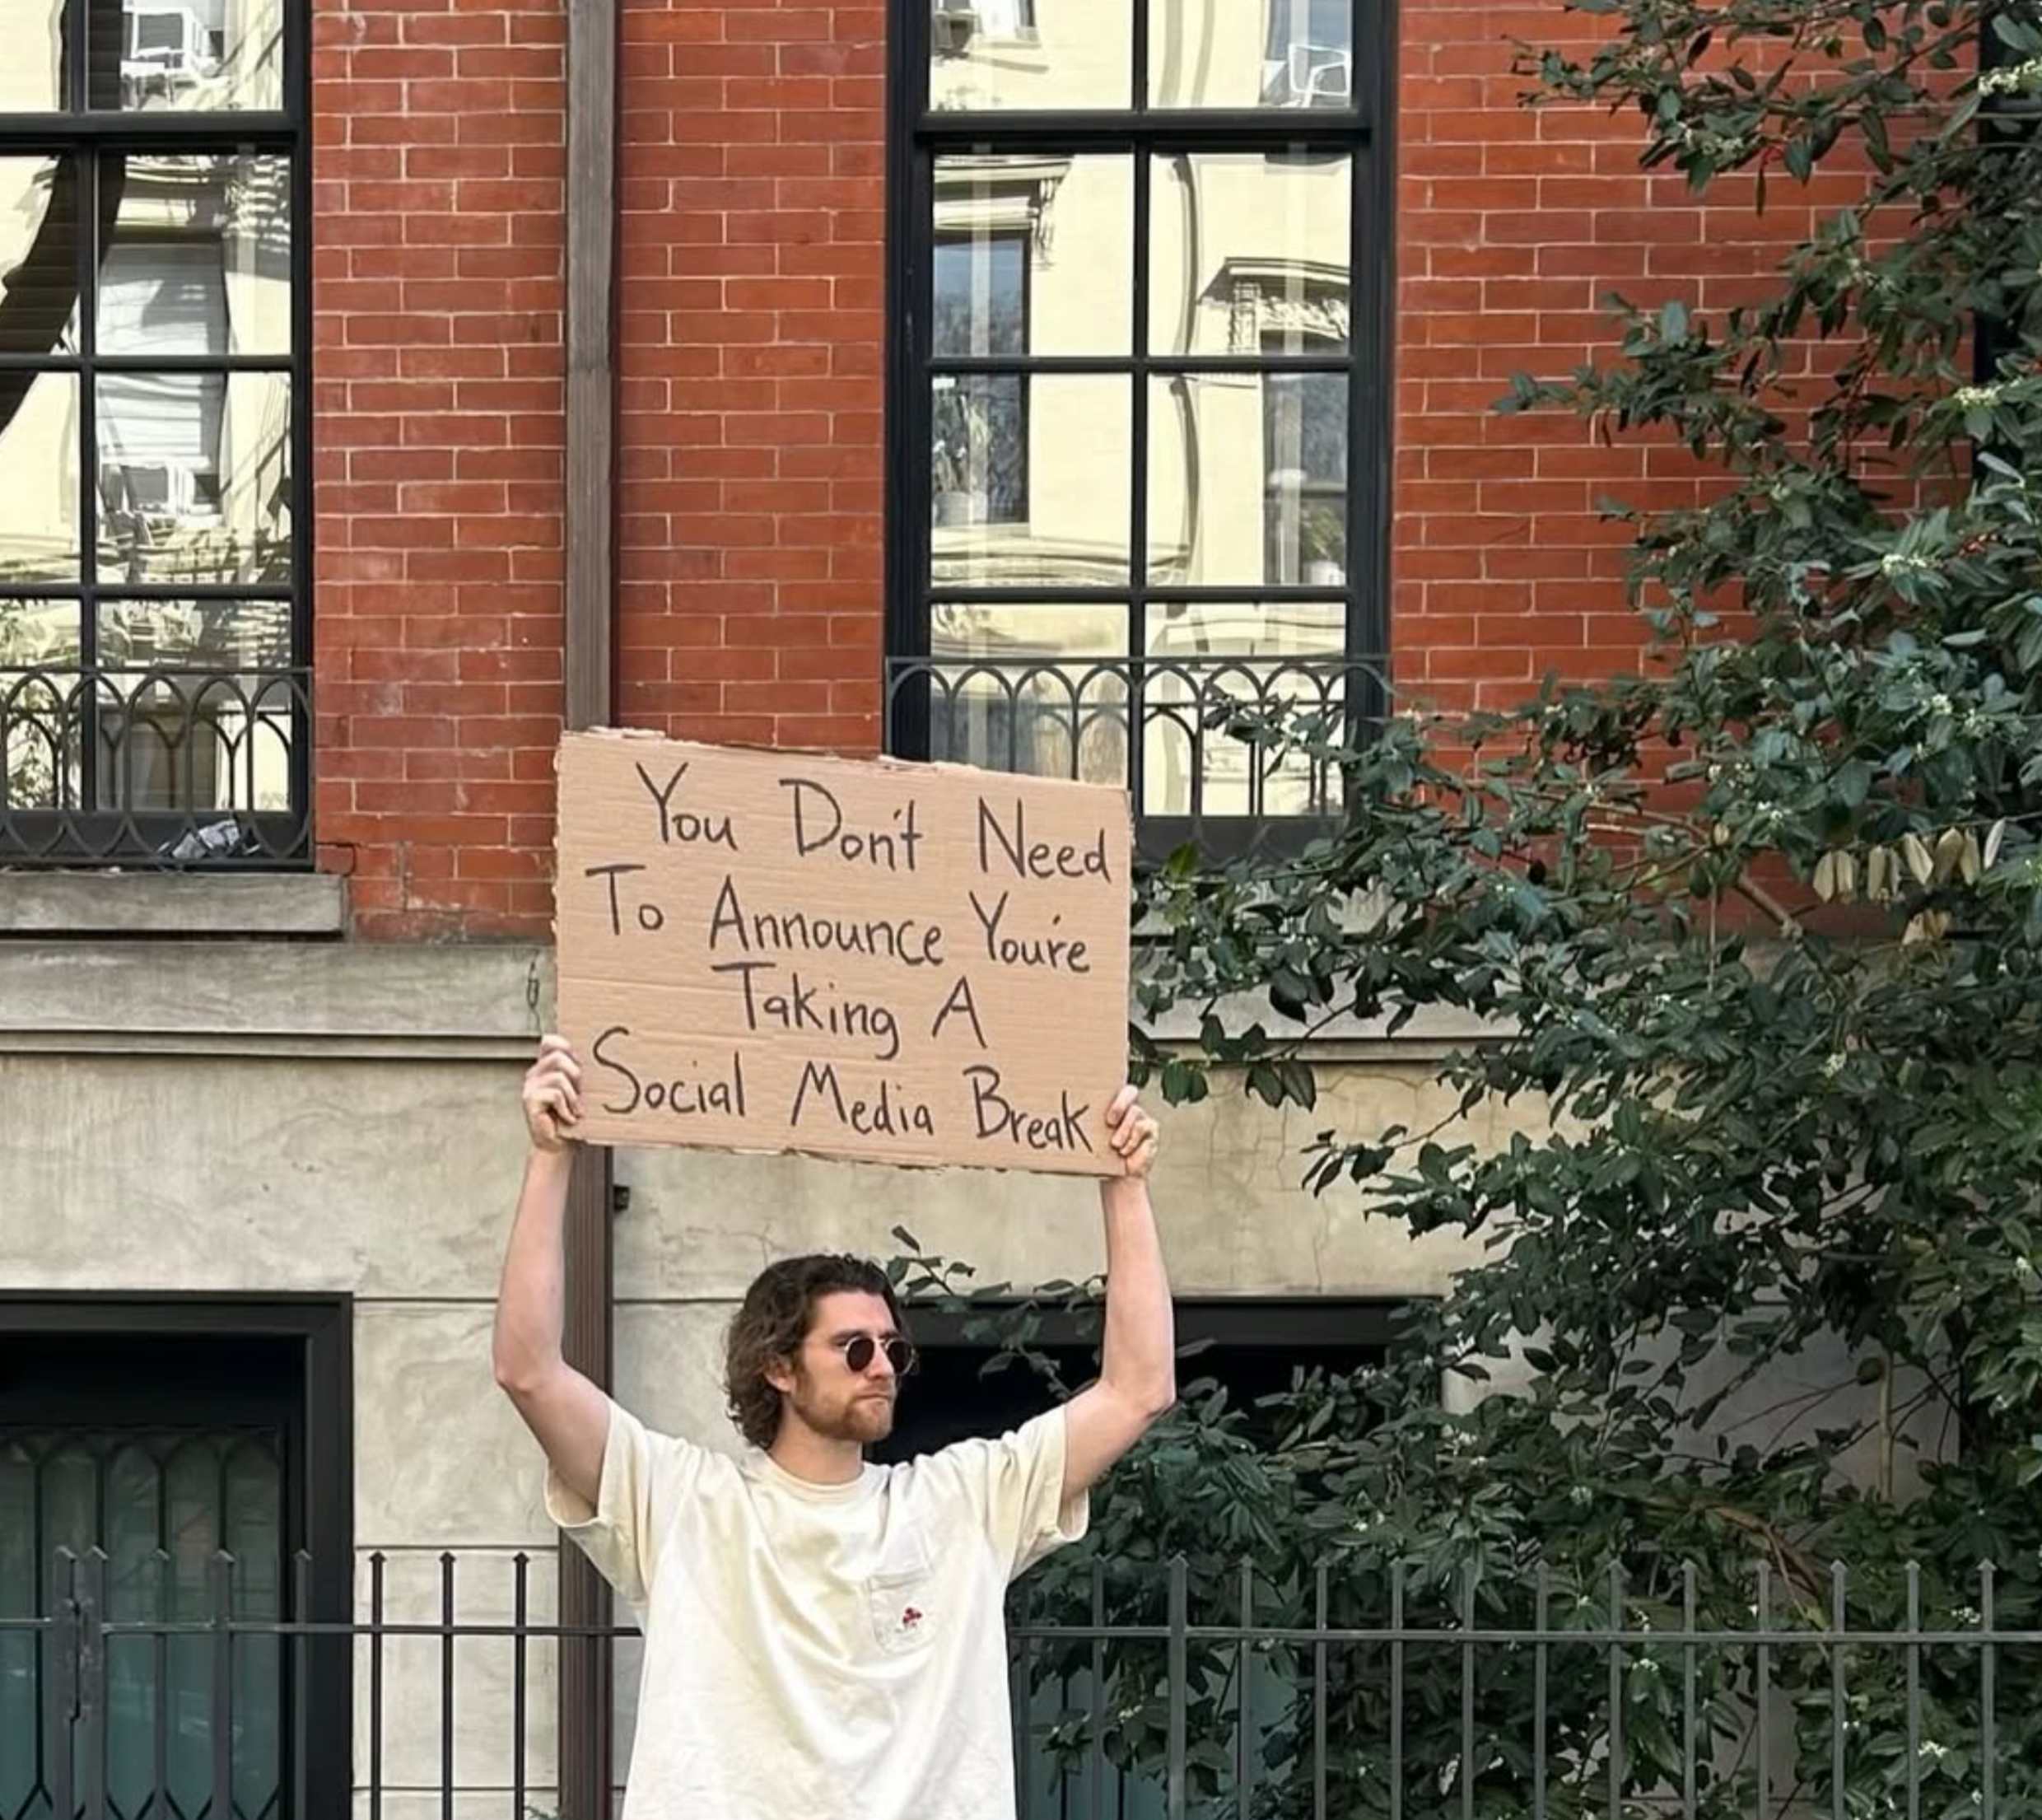 You Don't Need
To Announce You're
Taking A
Social Media Break